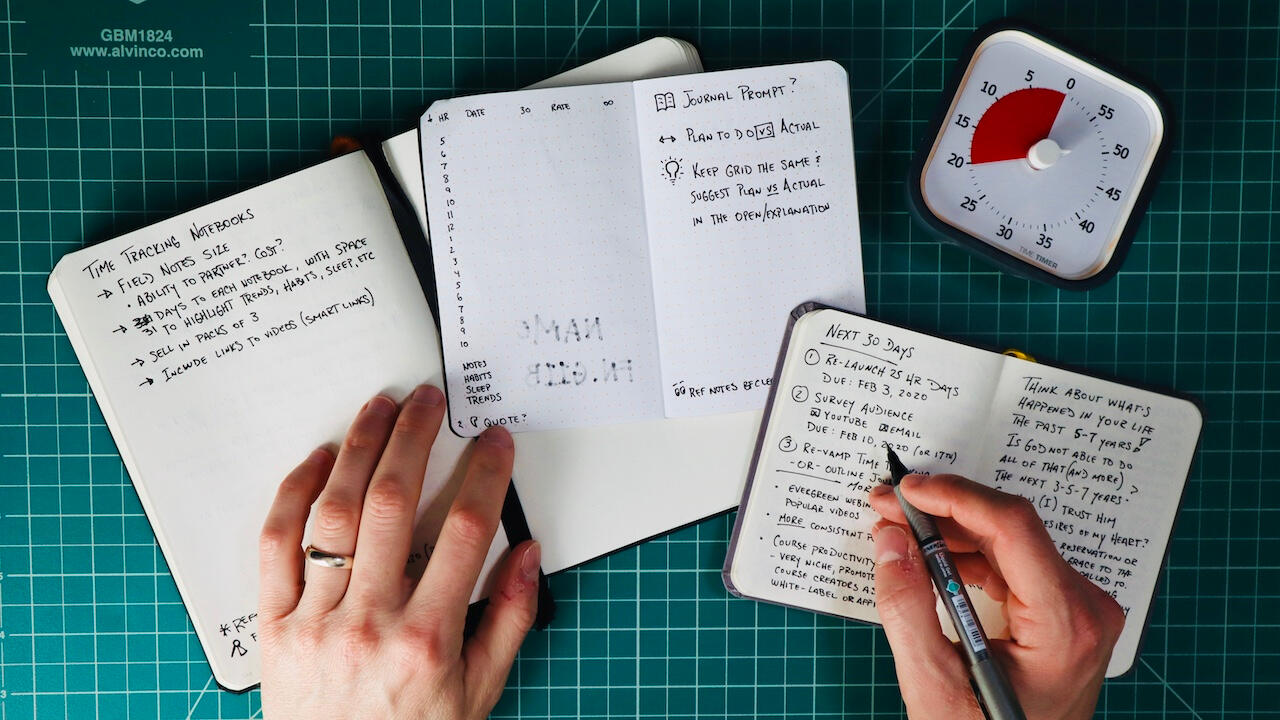 GBM1824
www.alvinco.com
TIME TRACKING NOTEBOOKS
→ FIELD NOTES SIZE
• ABILITY TO PARTNER? COST?
→ DAYS TO EACH NOTEBOOK, WITH SPACE
31 TO HIGHLIGHT TRENDS, HABITS, SLEEP, ETC
→ SELL IN PACKS OF 3
→ INCLUDE LINKS TO VIDEOS (SMART LINKS)
↓ HR DATE 30 RATE ∞
5
6
7
8
9
10
11
12
1
2
3
4
5
6
7
8
9
10
NOTES
HABITS
SLEEP
TRENDS
QUOTE?
JOURNAL PROMPT?
↔ PLAN TO DO VS ACTUAL
KEEP GRID THE SAME &
SUGGEST PLAN VS ACTUAL
IN THE OPEN/EXPLANATION
REF NOTES
0
5
10
15
20
25
30
35
40
45
50
55
TIME TIMER
NEXT 30 DAYS
① RE-LAUNCH 25 HR DAYS
DUE: FEB 3, 2020
② SURVEY AUDIENCE
☒ YOUTUBE ☒ EMAIL
DUE: FEB 10, 2020 (OR 17TH)
③ RE-VAMP TIME
-OR- OUTLINE
• EVERGREEN
POPULAR VIDEOS
• MORE CONSISTENT
• COURSE PRODUCTIVITY
- VERY NICHE, PROMOTE
COURSE CREATORS AS
WHITE-LABEL OR
THINK ABOUT WHAT'S
HAPPENED IN YOUR LIFE
THE PAST 5-7 YEARS!
IS GOD NOT ABLE TO DO
ALL OF THAT (AND MORE)
THE NEXT 3-5-7 YEARS?
(I) TRUST HIM
DESIRES OF MY HEART?
RESERVATION OR
GRACE TO THE
CALLED TO.